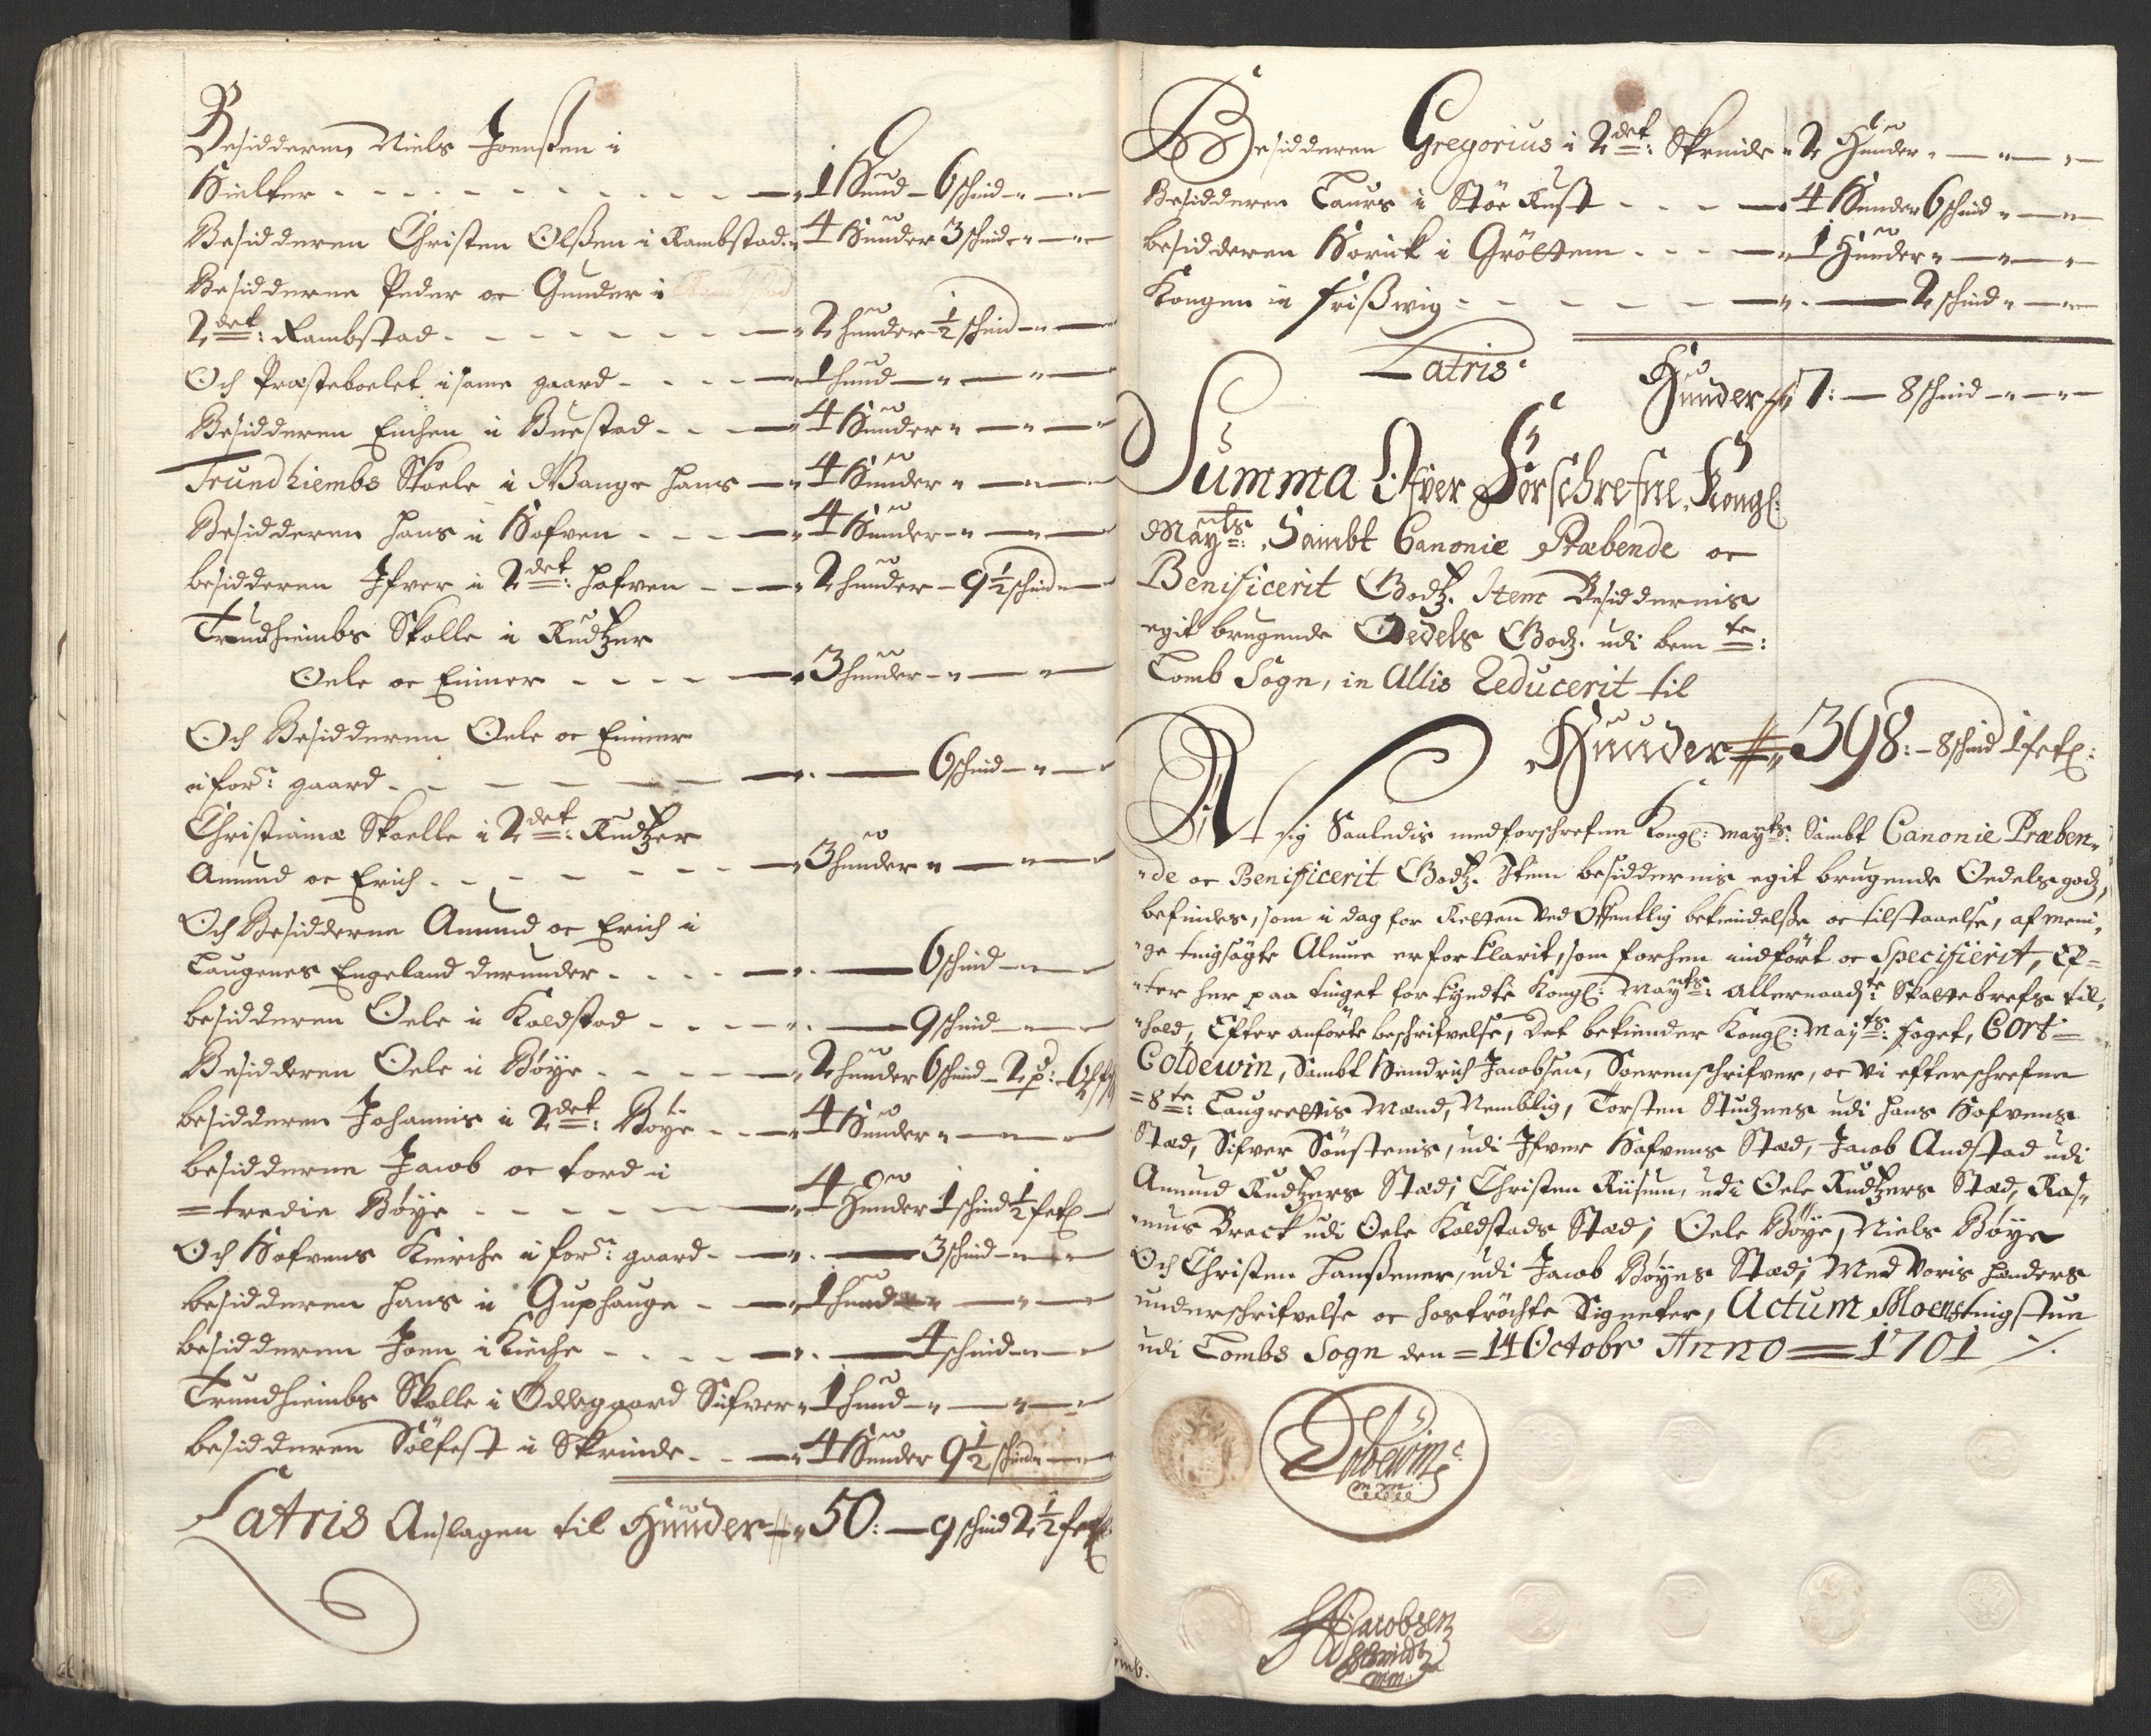 Besidderen Niels Joenßen i
Kielter - - - 1 Hund - 6 schind
Besidderen Christen Olßen i Rambstad 4 Hunder 3 schind
Besidderne Peder oc Gunder i
2det: Rambstad - - - 2 hunder 1/2 schind
Och Præsteboelet i same gaard - - - 1 hund
Besidderen Enchen i Buestad - - - 4 Hunder
Trundhiembs Skoele i Wange Hans - 4 Hunder
Besidderen Hans i Hofven - - - 4 Hunder
besidderen Ifver i 2det: hofven - - - 2 hunder - 9 1/2 schind
Trundhiembs Skolle i Rudtzer
Oele oc Einer - - - 3 hunder
Och Besidderen Oele oc Einer
i for: gaard - - - 6 schind
Christiania Skoelle i 2det: Rudtzer
Amund oc Erich - - - 3 hunder
Och Besidderne Amund oc Erich i
Laugenes Engeland derunder - - - 6 schind
besidderen Oele i Koldstad - - - 9 schind
Besidderen Oele i Böye - - - 2 hunder 6 schind - 2 p: 6
besidderen Johannis i 2det: Böye - - 4 Hunder
besidderne Jacob oc tord i
= tredie Böye - - - 4 Hunder 1 schind 1/2 fetl
Och Hofvens Kirche i for: gaard - 3 schind
besidderen Hans i Guphauge - - 1 hund
besidderen Joen i Kirche - - - 4 schind
Trundhiembs Skolle i Ödegaard Sifver 1 hund
besidderen Sölfest i Skrinde - - 4 Hunder 9 1/2 schind
Latris Anslagen til Hunder 50: - 9 schind 2 1/2 fetl
Besidderen Gregorius i 2det: Skrinde - 2 Hunder
Besidderen Laurs i Stör Rust - - - 4 Hunder 6 schind
besidderen Horick i Gröttem - - - 1 Hunder
Kongen i frißwig - - - 2 schind
Latris
Hunder 7: - 8 schind
Summa Ofver Forschrefne Kongl:
Mayts: Sambt Canonie Præbende oc
Benificerit Godtz. Item Besiddernis
egit brugende Oedels Godz. udi bemte:
Lomb Sogn, in Allis Reducerit til
Hunder 398: - 8 schind 1 fetl:
At sig Saaledis med forschrefne Kongl: mayts: Sambt Canonie Præben-
de oc Benificerit Godtz. Item besiddernis egit brugende Oedels godz,
befindes, som i dag for Retten ved Offentlig bekiendelße oc tilstaaelse, af meni-
ge tingsögte Almue er for klarit, som forhen indfört oc Specifierit, Ef-
ter her paa tinget forkyndte Kongl: Mayts: allernaadte: Skattebrefs til-
hold, Efter anförte beschrifvelse, Det bekiender Kongl: Mayts: foget, Cort
Coldewin, Sambt Hendrich Jacobsen, Sorenschrifver, oc vi efterschrefne
= 8te: Laugrettis Mænd, Nemblig, Torsten Studznes udi Hans Hofvens
Stæd, Sifver Sönstenis, udi Ifver Hafvens Stæd, Jacob Andstad udi
Amund Rudtzers Stæd; Christen Riisum, udi Oele Rudtzers Stæd, Ras-
mus Breck udi Oele Koldstads Stæd; Oele Böye, Niels Böye
Och Christen Hanßener, udi Jacob Böyes Stæd; Med voris Hænders
underschrifvelse oc hoströchte Signeter, Actum Moens tingstue
udi Lombs Sogn den = 14 Octobr Anno = 1701 /.
Coldewin
mm
HJacobsen
Schmidt
mm.